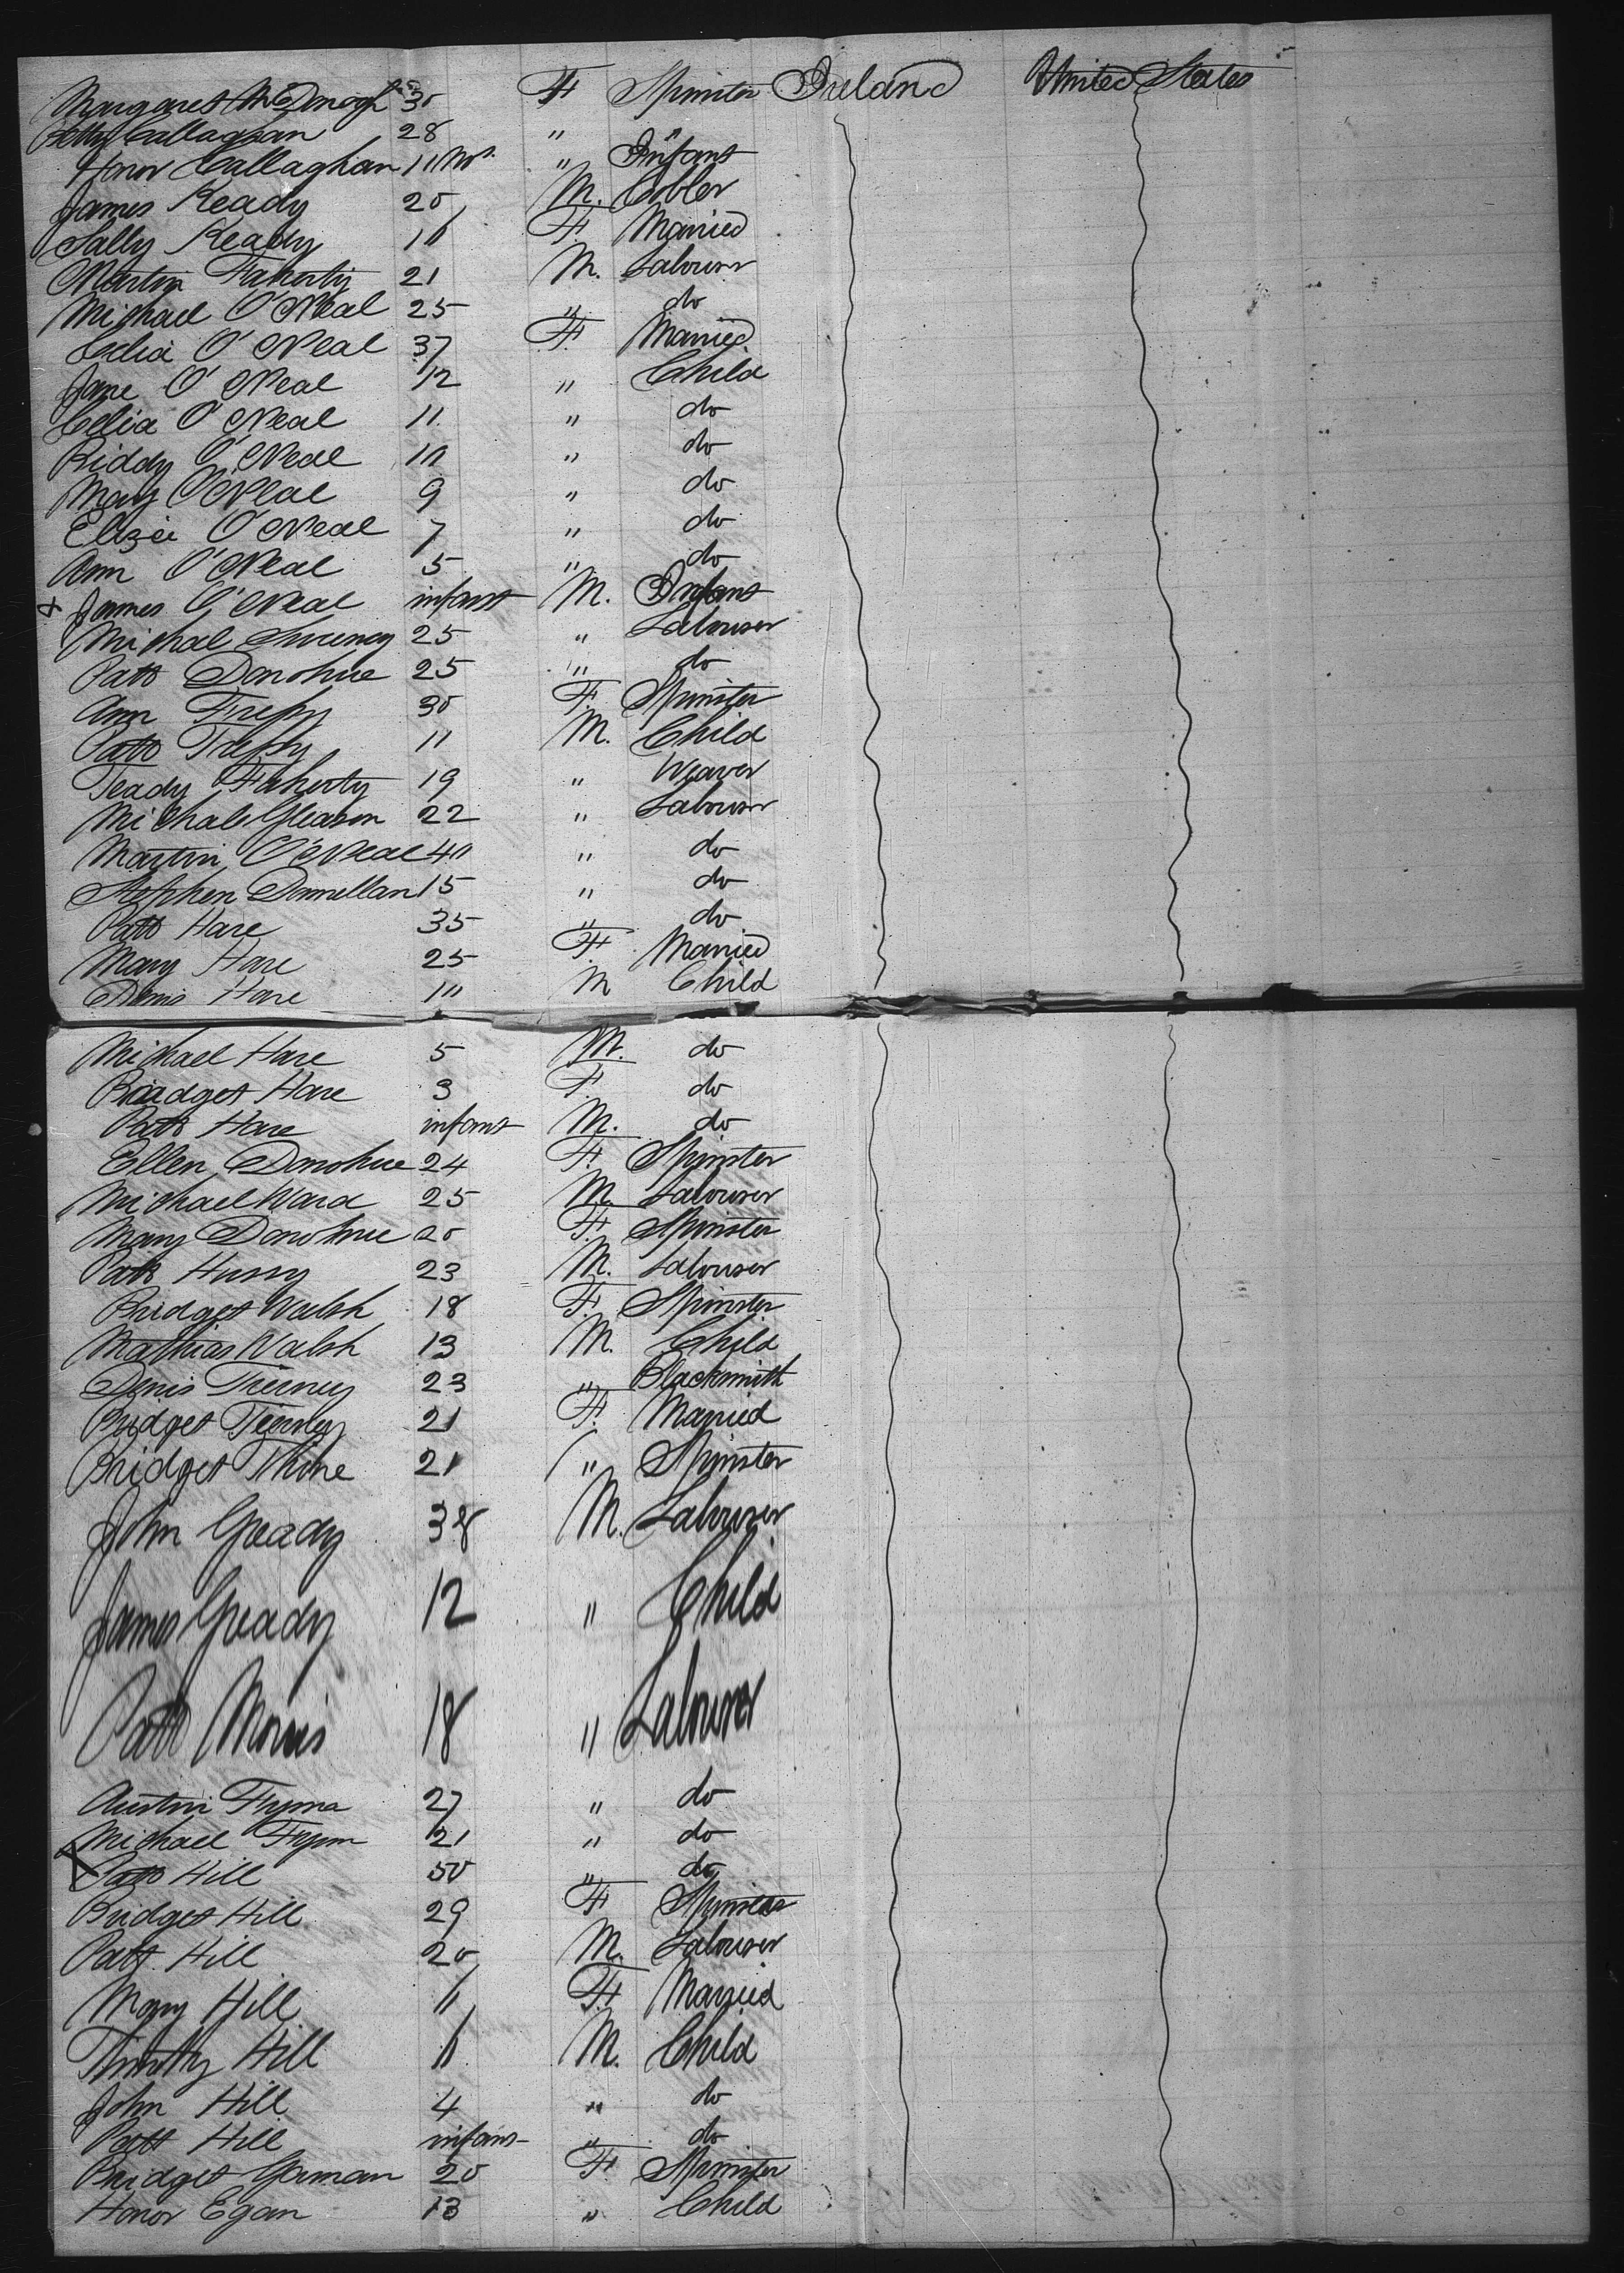 Margaret McDonogh 30 F Spinster Ireland United States
Betty Callaghan 28 " "
Honor Callaghan 11 Ms " Infant
James Keady 20 M. Cobler
Sally Keady F. Married
Martin Faherty 21 M. Labourer
Michael O'Neal 25 " do
Celia O'Neal 37 F. Married
Jane O'Neal 12 " Child
Celia O'Neal 11 " do
Biddy O'Neal 10 " do
Mary O'Neal 9 " do
Eliza O'Neal 7 " do
Ann O'Neal 5 " do
x James O'Neal infant M. Infant
Michal Sweeney 25 " Labourer
Patt Donohue 25 " do
Ann 30 F. Spinster
Patt 11 M. Child
Teady Faherty 19 " Weaver
Michale Gleason 22 " Labourer
Martin O'Neal 40 " do
Stephen Donnellan 15 " do
Patt Hare 35 " do
Mary Hare 25 F. Married
Denis Hare 10 M Child
Michael Hare 5 M. do
Bridget Hare 3 F. do
Patt Hare infant M. do
Ellen Donohue 24 F. Spinster
Michael Ward 25 M. Labourer
Mary Donohue 20 F. Spinster
Patt Hussy 23 M. Labourer
Bridget Walsh 18 F. Spinster
Mathias Walsh 13 M. Child
Denis Tierney 23 " Blacksmith
Bridget Tierney 21 F. Married
Bridget 21 " Spinster
John Gready 38 M. Labourer
James Gready 12 " Child
Patt Morris 18 " Labourer
Austin 27 " do
Michael 21 " do
x Patt Hill 50 " do
Bridget Hill 29 F Spinster
Patt Hill 20 M. Labourer
Mary Hill " F. Married
Timothy Hill M. Child
John Hill 4 " do
Patt Hill infant " do
Bridget Gorman 20 F Spinster
Honor Egan 13 " Child